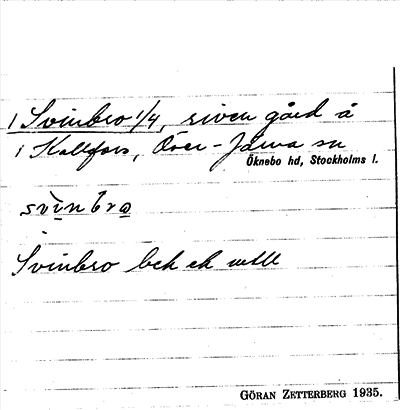 1 Svinbro 1/4, riven gård å
1 Kallfors, Över-Järna sn
Öknebo hd, Stockholms l.
svinbro
Svinbro bek ek
GÖRAN ZETTERBERG 1935.